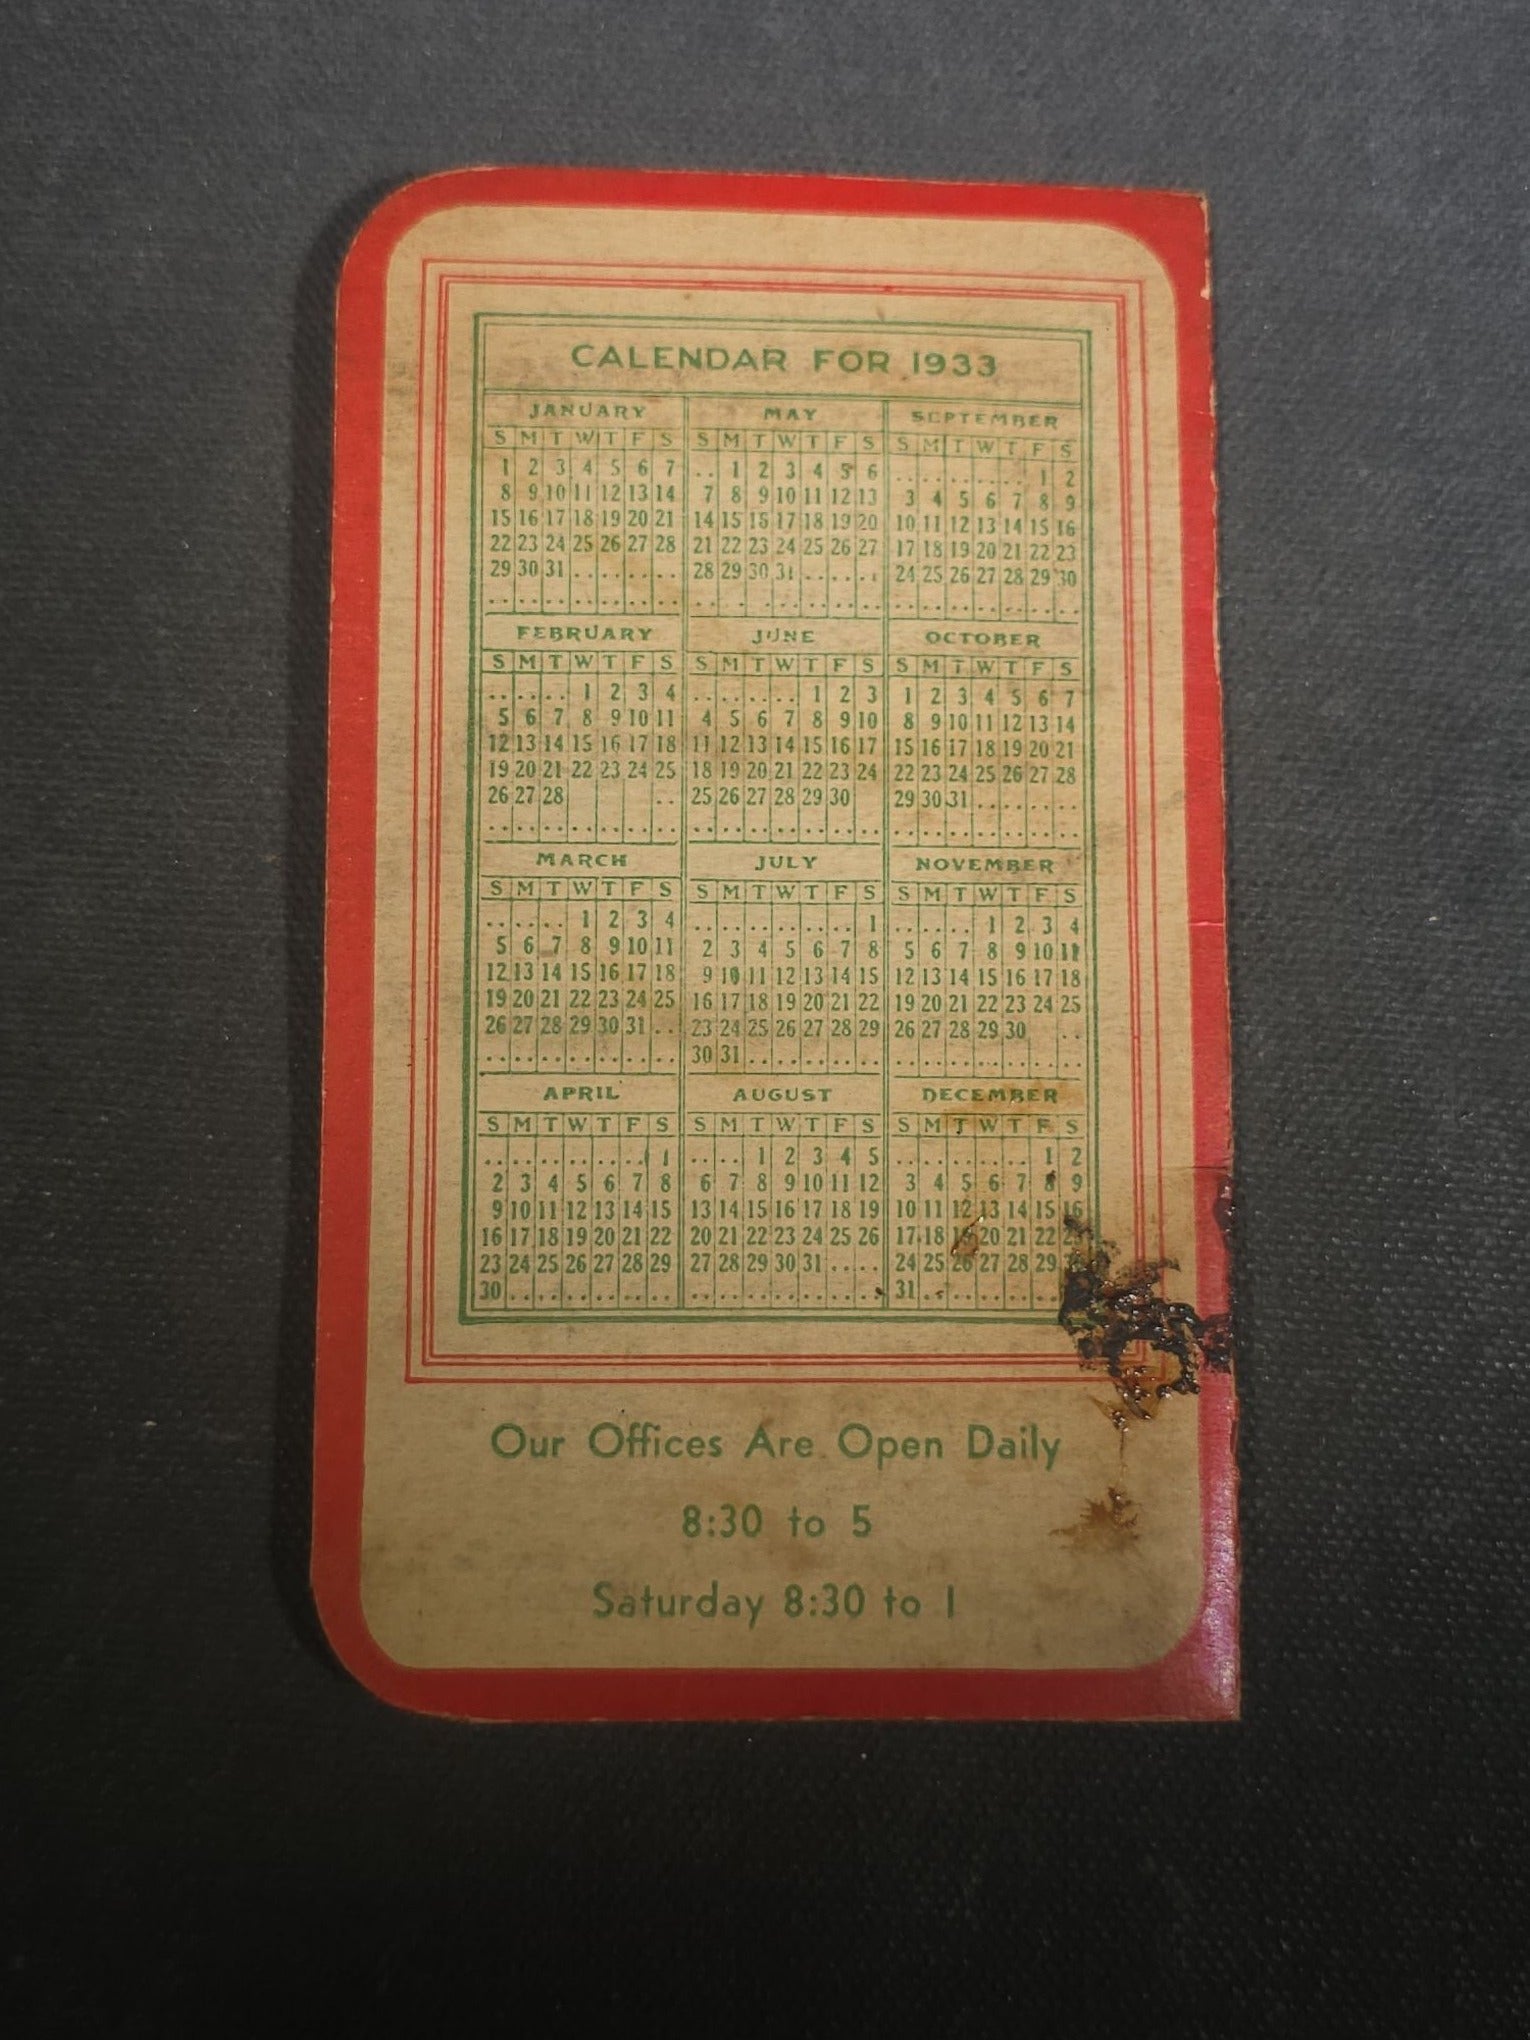 CALENDAR FOR 1933
JANUARY
S M T W T F S
1 2 3 4 5 6 7
8 9 10 11 12 13 14
15 16 17 18 19 20 21
22 23 24 25 26 27 28
29 30 31
FEBRUARY
S M T W T F S
1 2 3 4
5 6 7 8 9 10 11
12 13 14 15 16 17 18
19 20 21 22 23 24 25
26 27 28
MARCH
S M T W T F S
1 2 3 4
5 6 7 8 9 10 11
12 13 14 15 16 17 18
19 20 21 22 23 24 25
26 27 28 29 30 31
APRIL
S M T W T F S
1
2 3 4 5 6 7 8
9 10 11 12 13 14 15
16 17 18 19 20 21 22
23 24 25 26 27 28 29
30
MAY
S M T W T F S
1 2 3 4 5 6
7 8 9 10 11 12 13
14 15 16 17 18 19 20
21 22 23 24 25 26 27
28 29 30 31
JUNE
S M T W T F S
1 2 3
4 5 6 7 8 9 10
11 12 13 14 15 16 17
18 19 20 21 22 23 24
25 26 27 28 29 30
JULY
S M T W T F S
1
2 3 4 5 6 7 8
9 10 11 12 13 14 15
16 17 18 19 20 21 22
23 24 25 26 27 28 29
30 31
AUGUST
S M T W T F S
1 2 3 4 5
6 7 8 9 10 11 12
13 14 15 16 17 18 19
20 21 22 23 24 25 26
27 28 29 30 31
SEPTEMBER
S M T W T F S
1 2
3 4 5 6 7 8 9
10 11 12 13 14 15 16
17 18 19 20 21 22 23
24 25 26 27 28 29 30
OCTOBER
S M T W T F S
1 2 3 4 5 6 7
8 9 10 11 12 13 14
15 16 17 18 19 20 21
22 23 24 25 26 27 28
29 30 31
NOVEMBER
S M T W T F S
1 2 3 4
5 6 7 8 9 10 11
12 13 14 15 16 17 18
19 20 21 22 23 24 25
26 27 28 29 30
DECEMBER
S M T W T F S
1 2
3 4 5 6 7 8 9
10 11 12 13 14 15 16
17 18 19 20 21 22 23
24 25 26 27 28 29
31
Our Offices Are Open Daily
8:30 to 5
Saturday 8:30 to 1